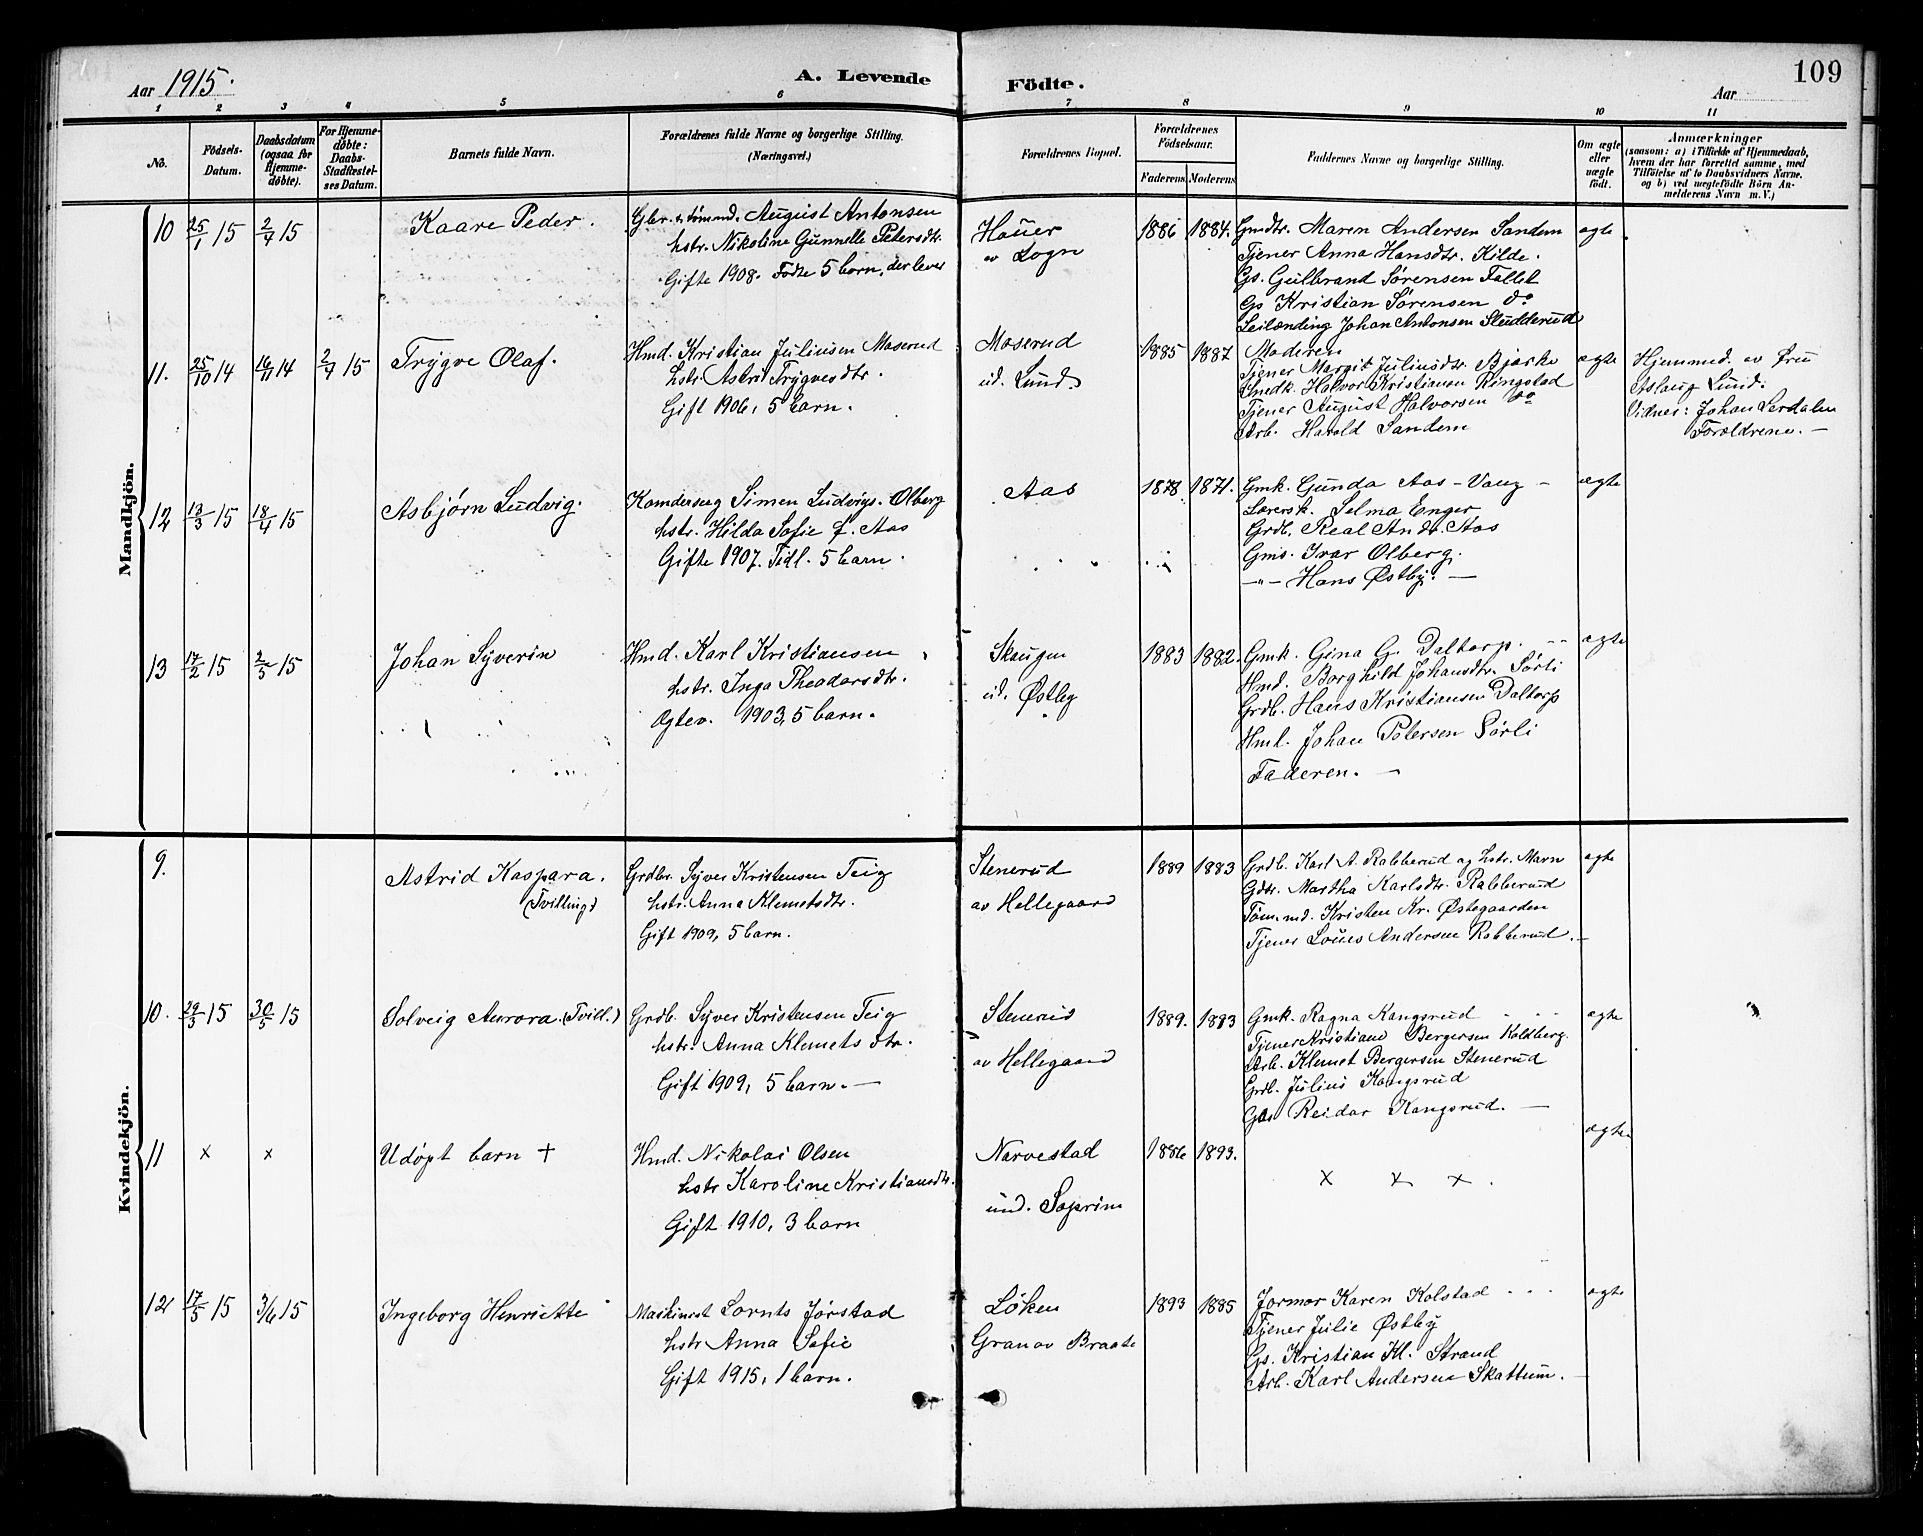 Aar 1915.
A. Levende Födte.
Aar
109
1 2 3 4 5 6 7 8 9 10 11
No.
Födsels-Datum.
Daabsdatum (ogsaa for Hjemme-döbte).
For Hjemme-döbte: Daabs-Stadfestel-ses Datum.
Barnets fulde Navn.
Forældrenes fulde Navne og borgerlige Stilling.
(Næringsvei.)
Forældrenes Bopæl.
Forældrenes Födselsaar.
Faderens Moderens
Faddernes Navne og borgerlige Stilling.
Om ægte eller uægte födt.
Anmærkninger
(saasom: a) i Tilfælde af Hjemmedaab,
hvem der har forrettet samme, med
Tilföielse af to Daabsvidners Navne,
og b) ved uægtefödte Börn An-
melderens Navn m. V.)
Mandkjön.
10 25/1 15 2/4 15
Kaare Peder.
August Antonsen
hstr. Nikoline Gunnelle Petersdtr.
Gifte 1908. Födte 5 barn, der lever
av Sogn
1886 1884.
Gmdtr. Maren Andersen Sandem
Tjener Anna Hansdtr. Kilde.
Gs. Gulbrand Sørensen Fallet
Gs Kristian Sørensen do
Leilænding Johan Antonsen Studderud
ægte
11. 25/10 14 16/11 14 2/4 15
Trygve Olaf.
Hmd. Kristian Juliusen Moserud
hstr. Astrid Trygvesdtr.
Gift 1906, 5 barn.
Moserud
ud. Lund
1885 1887
Moderen
Tjener Margit Juliusdtr. Bjerke
Smdk. Halvor Kristiansen Ringstad
Tjener August Halvorsen do
Arb. Harald Sandem
ægte
Hjemmed. av Fru
Aslaug Lund.
Vidner: Johan Lerdalen
Forældrene. —
12 13/3 15 18/4 15
Asbjørn Ludvig.
Simen Ludvigs. Olberg
hstr. Hilda Sofie f. Aas
Gifte 1907. Tidl. 5 barn.
Aas
1878 1871.
Gmk. Gunda Aas - Vang -
Lærersk. Selma Enger
Grdb. Real Andr. Aas
Gms. Ivar Olberg.
—"— Hans Østby. —
ægte
13 17/2 15 2/5 15
Johan Syverin
Hmd. Karl Kristiansen
hstr. Inga Theodorsdtr.
Ægtev. 1903, 5 barn.
Skaugen
ud. Østby
1883 1882.
Gmk. Gina G. Daltorp.
Hmd. Borghild Johansdtr. Sørli
Grdb. Hans Kristiansen Daltorp
Hmd. Johan Petersen Sørli
Faderen. —
ægte
Kvindekjön.
9.
Astrid Kaspara.
(Tvilling)
Grdbr. Syver Kristensen Teig
hstr. Anna Klemetsdtr.
Gift 1909, 5 barn.
Stenerud
av Hellegaard
1889 1883
Grdb. Karl A. Rabberud og hstr. Marn
Gdtr. Martha Karlsdtr. Rabberud
Tøm.md. Kristen Kr. Østegaarden
Tjener Louis Andersen Rabberud. —
ægte
10. 29/3 15 30/5 15
Solveig Aurora. (Tvill.)
Grdb. Syver Kristensen Teig
hstr. Anna Klemetsdtr.
Gift 1909, 5 barn. —
Stenerud
av Hellegaard
1889. 1883
Gmk. Ragna Kangsrud
Tjener Kristiane Bergersen Koldberg.
Arb. Klemet Bergersen Stenerud
Grdb. Julius Kangsrud
Gs. Reidar Kangsrud. —
ægte
11 x x
Udøpt barn +
Hmd. Nikolai Olsen
hstr Karoline Kristiansdtr.
Gift 1910, 3 barn
Narvestad
und. Soprim
1886 1893.
x x x.
ægte
12 17/5 15 3/6 15
Ingeborg Henriette
Maskinist Lornts Jørstad
hstr Anna Sofie
Gift 1915, 1 barn.
Løken
Gran av Braate
1893 1885
Jormor Karen Kolstad
Tjener Julie Østby
Gs. Kristian Kl. Strand
Arb. Karl Andersen Skattum. —
ægte